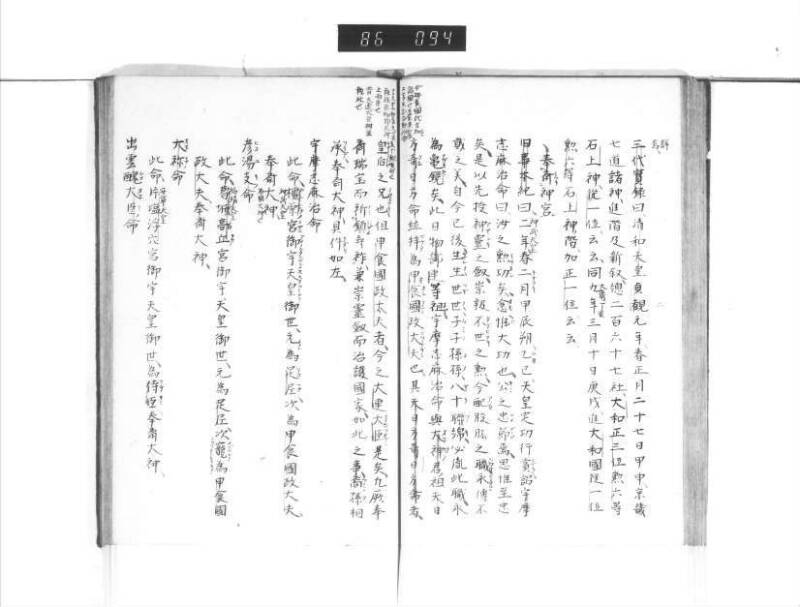 86 094
三代實錄曰清和天皇貞觀元年春正月二十七日甲申京畿
七道諸神進階及新叙總二百六十七社大和正三位勲六等
石上神從一位云云同九年三月十日庚戌進大和國從一位
勲六等石上神階加正一位云云
奉斎神宮
旧事本紀曰二年春二月甲辰朔乙巳天皇定功行賞詔宇摩
志麻治命曰汝之勲功矣念惟大功也公之忠節焉思惟至忠
矣是以先授神靈之劔崇報不世之勲今配股肱之職永傳不
貳之美自今已後生生世世子子孫孫八十聯綿必胤此職永
為亀鏡矣此日物部連等祖宇摩志麻治命與大神君祖天日
方奇日方命並拜為申食國政大夫也其天日方奇日方命者
皇后之兄也但申食國政大夫者今之大連大臣是矣凡厥奉
斎瑞宝而祈鎮寿祚兼崇靈劔而治護國家如此之事裔孫相
承奉斎大神具件如左
宇摩志麻治命
此命橿原宮御宇天皇御世元為足尼次為申食國政大夫
奉斎大神
彦湯支命
此命葛城高丘宮御宇天皇御世元為足尼次寵為申食國
政大夫奉斎大神
大祢命
此命片塩浮穴宮御宇天皇御世為侍臣奉斎大神
出雲醜大臣命